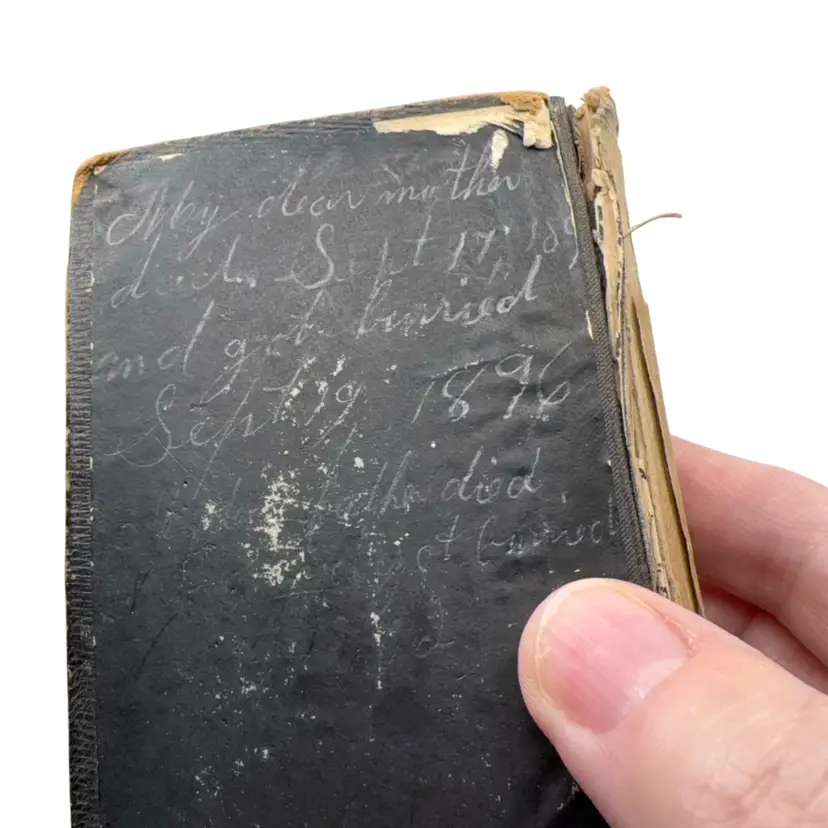 My dear mother
died Sept 17th 189
and got burried
Sept 19 1896
father died
got burried